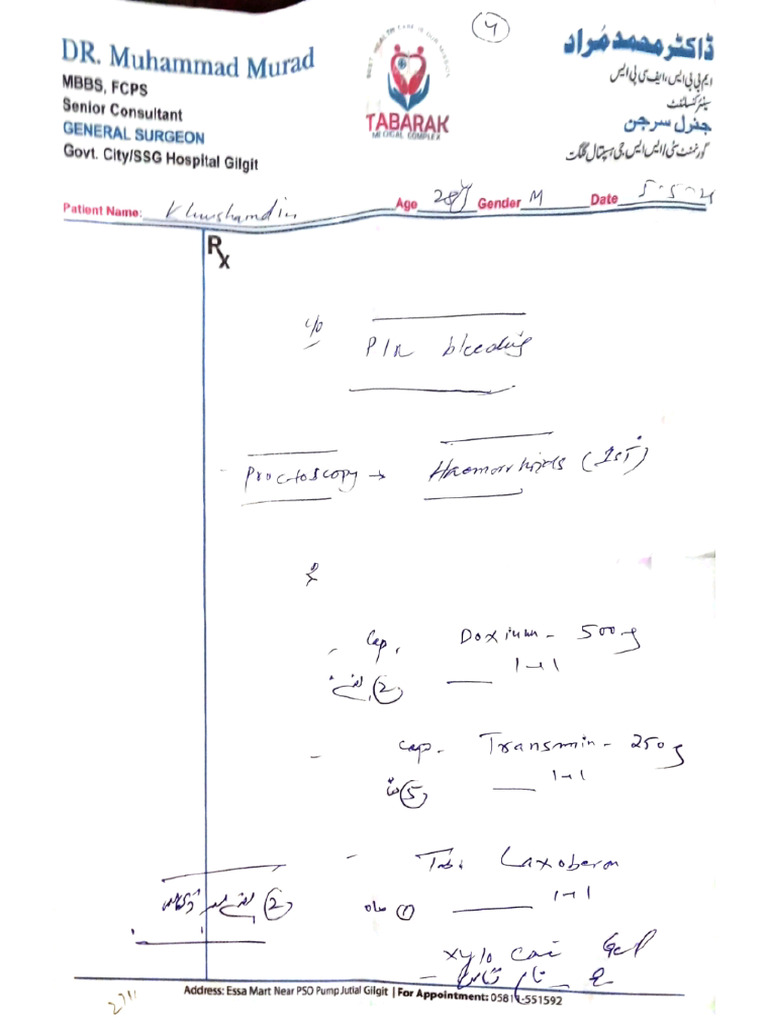 4
DR. Muhammad Murad
MBBS, FCPS
Senior Consultant
GENERAL SURGEON
Govt. City/SSG Hospital Gilgit
BEST HEALTH CARE IS OUR MISSION
TABARAK
MEDICAL COMPLEX
ڈاکٹر محمد مُراد
ایم بی بی ایس، ایف سی پی ایس
سینئر کنسلٹنٹ
جنرل سرجن
گورنمنٹ سٹی/ایس ایس جی ہسپتال گلگت
Patient Name: Khushamdin Age 28y Gender M Date 5-5-
Rx
c/o P/R bleeding
Proctoscopy → Haemorrhoids (1st)
- Cap. Doxium - 500g
1-1
2 ہفتے
- Cap. Transmin - 250g
1-1
5
- Tab. Laxoberon
1-1
1 ماہ
2 ہفتے
xylo Gel
Address: Essa Mart Near PSO Pump Jutial Gilgit | For Appointment: 05811-551592